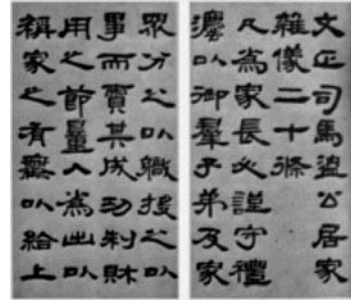 文正司馬溫公居家
雜儀二十條
凡為家長必謹守禮
灋以御羣子弟及家
眾分之以職授之以
事而責其成功制財
用之節量入為出以
稱家之有無以給上